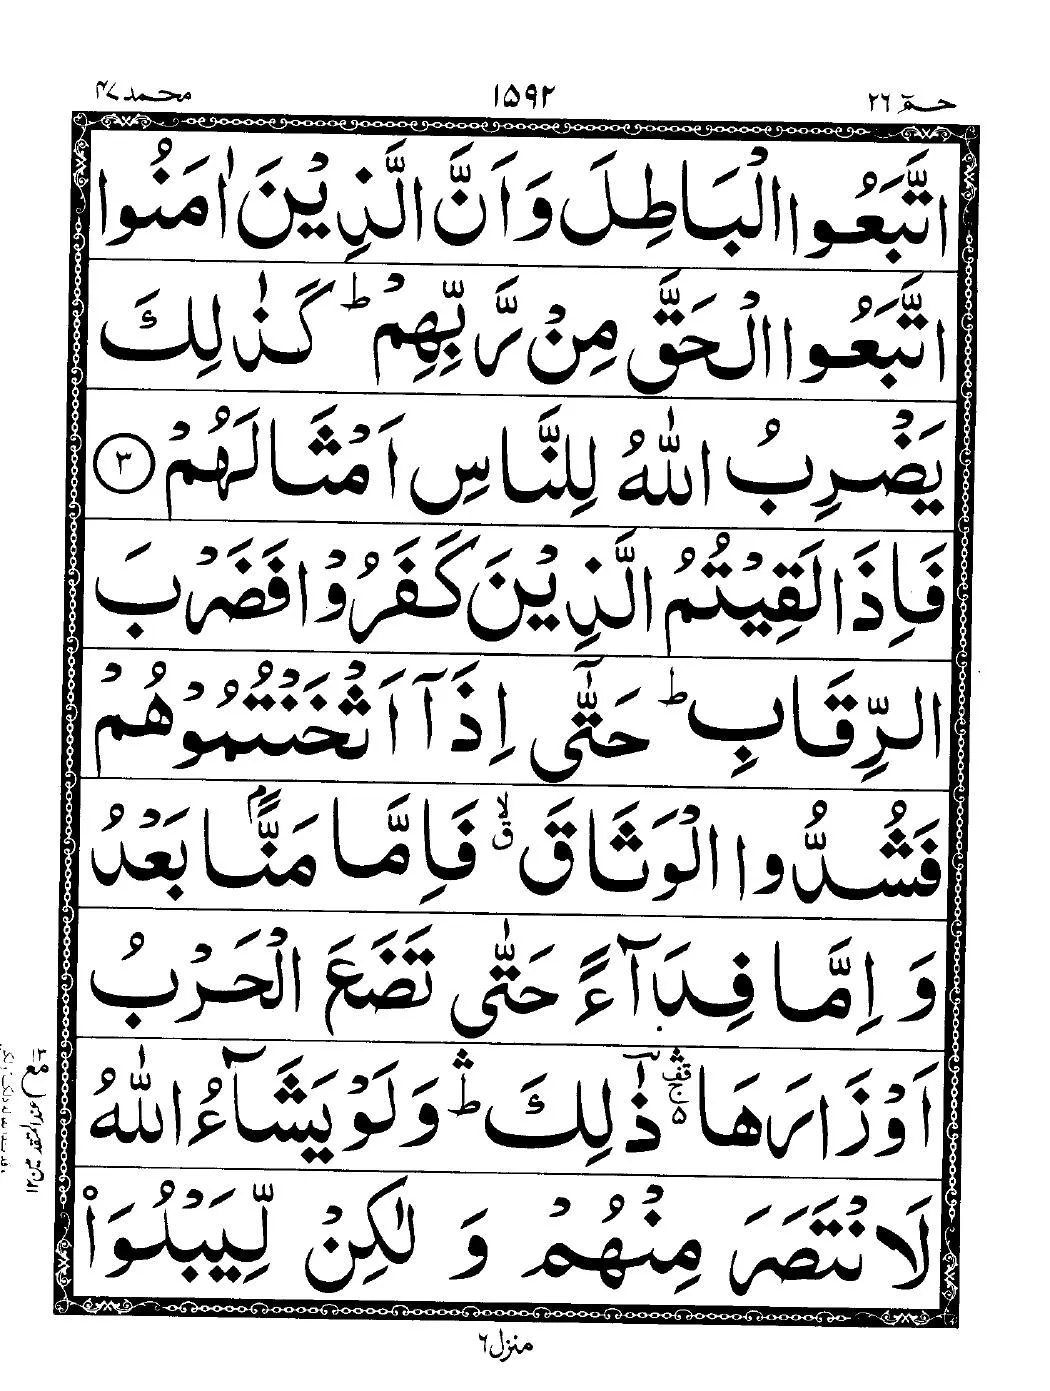 حٰمٓ ٢٦
١٥٩٢
محمد ٤٧
اتَّبَعُوا الْبَاطِلَ وَاَنَّ الَّذِيْنَ اٰمَنُوا
اتَّبَعُوا الْحَقَّ مِنْ رَّبِّهِمْ ؕ كَذٰلِكَ
يَضْرِبُ اللّٰهُ لِلنَّاسِ اَمْثَالَهُمْ ٣
فَاِذَا لَقِيْتُمُ الَّذِيْنَ كَفَرُوْا فَضَرْبَ
الرِّقَابِ ؕ حَتّٰٓى اِذَآ اَثْخَنْتُمُوْهُمْ
فَشُدُّوا الْوَثَاقَ ۙق فَاِمَّا مَنًّۢا بَعْدُ
وَاِمَّا فِدَآءً حَتّٰى تَضَعَ الْحَرْبُ
اَوْزَارَهَا ۛۚ۵ ذٰلِكَ ؕۛ وَلَوْ يَشَآءُ اللّٰهُ
لَانْتَصَرَ مِنْهُمْ وَ لٰكِنْ لِّيَبْلُوَا۟
منزل ٦